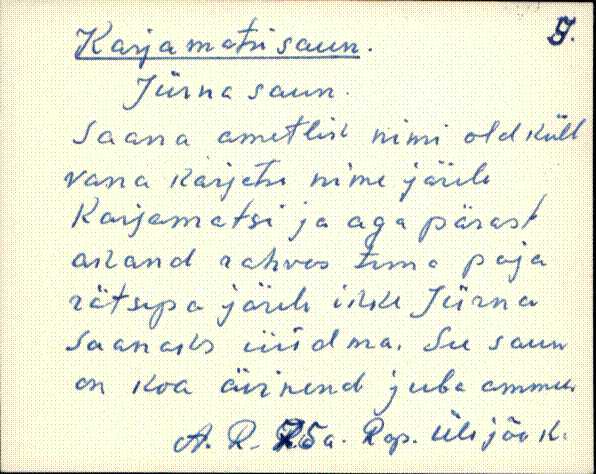 9.
Karjamatsi saun.
Jürna saun.
Saana ametlik nimi old küll
vana karjatse nime järele
Karjamatsi ja aga pärast
akand rahvas tema poja
rätsepa järele ikke Jürna
Saanaks üidma. See saun
on koa ävinend juba ammu.
A. R. 75a. Rap. Ülejõe k.